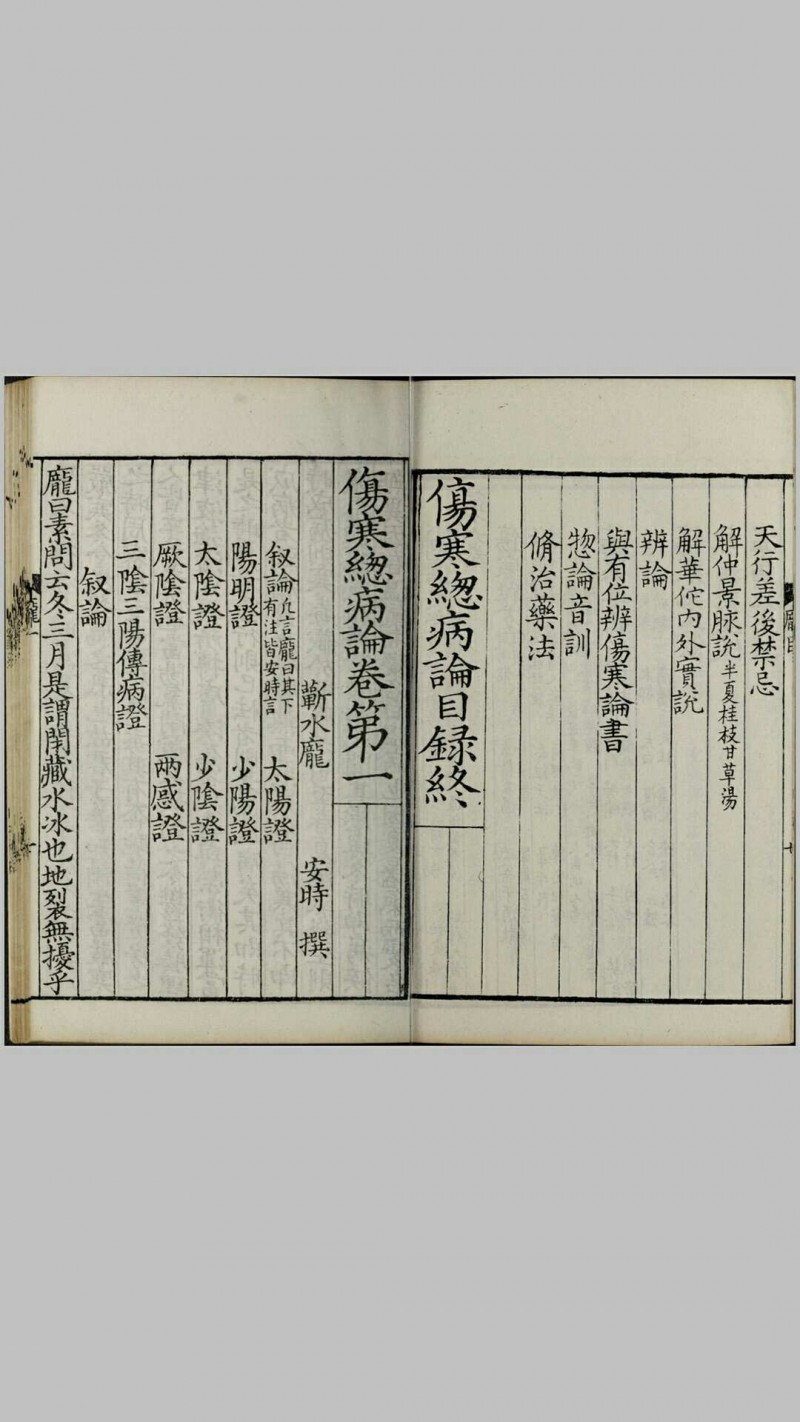 天行差後禁忌
解仲景脉說半夏桂枝甘草湯
解華佗内外實說
辨論
與有位辨傷寒論書
惣論音訓
脩治藥法
傷寒緫病論目録終
傷寒緫病論卷第一
蘄水龐 安時 撰
叙論凡言龐曰其下有注皆安時言 太陽證
陽明證 少陽證
太陰證 少陰證
厥陰證 兩感證
三陰三陽傳病證
叙論
龐曰素問云冬三月是謂閉藏水冰也地裂無擾乎